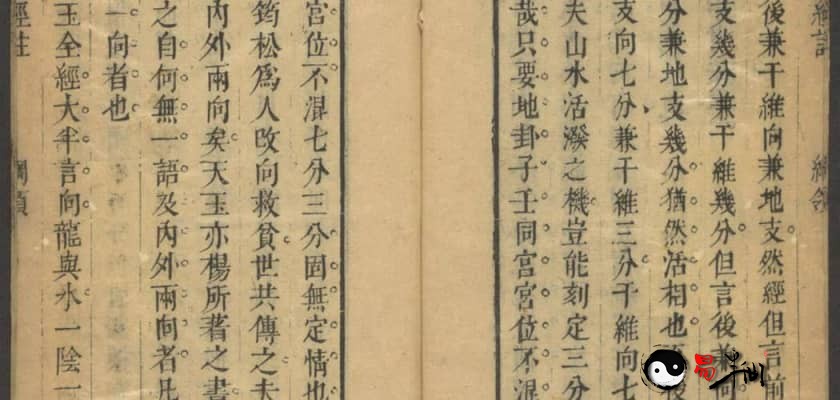 後兼干維向兼地支然經但言前
支幾分兼干維幾分但言後兼
分兼地支幾分猶然活相也
支向七分兼干維三分干維向七
夫山水活潑之機豈能刻定三分
哉只要地卦子壬同宮宮位不混
宮位不混七分三分固無定情也
筠松爲人改向救貧世共傳之夫
內外兩向矣天玉亦楊所著之書
之自何無一語及內外兩向者凡
一向者也
玉全經大半言向龍與水一陰一
經註